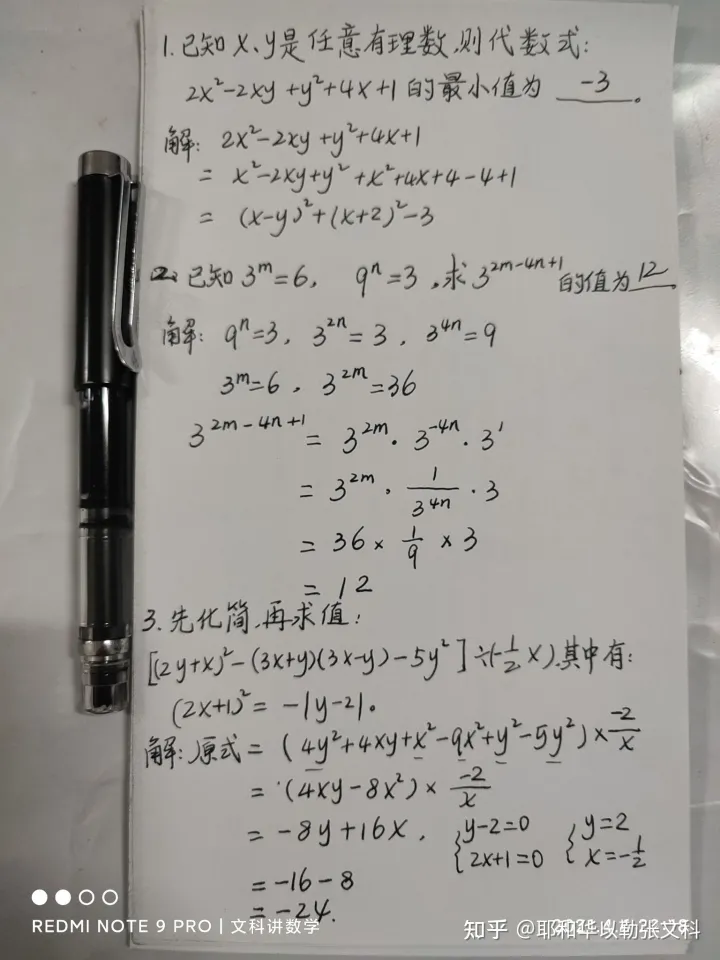 1.已知x、y是任意有理数,则代数式:
2x²-2xy+y²+4x+1的最小值为 -3 。
解: 2x²-2xy+y²+4x+1
= x²-2xy+y²+x²+4x+4-4+1
= (x-y)²+(x+2)²-3
2. 已知3^m=6, 9^n=3,求3^{2m-4n+1}的值为12。
解: 9^n=3, 3^{2n}=3, 3^{4n}=9
3^m=6, 3^{2m}=36
3^{2m-4n+1} = 3^{2m}·3^{-4n}·3^1
= 3^{2m}·\frac{1}{3^{4n}}·3
= 36×\frac{1}{9}×3
= 12
3.先化简,再求值:
[(2y+x)²-(3x+y)(3x-y)-5y²]÷(-\frac{1}{2}x),其中有:
(2x+1)²=-|y-2|。
解:原式=(4y²+4xy+x²-9x²+y²-5y²)×\frac{-2}{x}
=(4xy-8x²)×\frac{-2}{x}
=-8y+16x, {y-2=0 {y=2
{2x+1=0 {x=-\frac{1}{2}
=-16-8
=-24.
REDMI NOTE 9 PRO | 文科讲数学
知乎 @耶和华以勒张文科